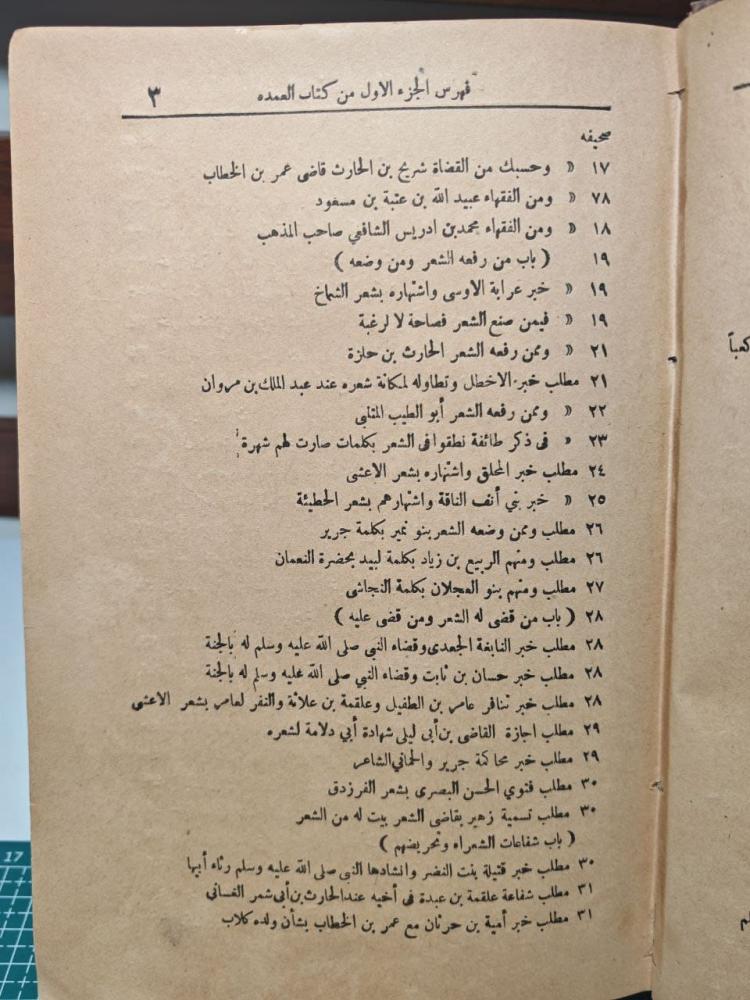 فهرس الجزء الاول من كتاب العمده ٣
صحيفه
١٧ « وحسبك من القضاة شريح بن الحارث قاضى عمر بن الخطاب
٧٨ « ومن الفقهاء عبيد الله بن عتبة بن مسعود
١٨ « ومن الفقهاء محمد بن ادريس الشافعي صاحب المذهب
١٩ ( باب من رفعه الشعر ومن وضعه )
١٩ « خبر عرابة الاوسى واشتهاره بشعر الشماخ
١٩ « فيمن صنع الشعر فصاحة لا لرغبة
٢١ « وممن رفعه الشعر الحارث بن حلزة
٢١ مطلب خبر الاخطل وتطاوله لمكانة شعره عند عبد الملك بن مروان
٢٢ « وممن رفعه الشعر أبو الطيب المتنبي
٢٣ « فى ذكر طائفة نطقوا فى الشعر بكلمات صارت لهم شهرة
٢٤ مطلب خبر المحلق واشتهاره بشعر الاعشى
٢٥ « خبر بني أنف الناقة واشتهارهم بشعر الحطيئة
٢٦ مطلب وممن وضعه الشعر بنو نمير بكلمة جرير
٢٦ مطلب ومنهم الربيع بن زياد بكلمة لبيد بحضرة النعمان
٢٧ مطلب ومنهم بنو العجلان بكلمة النجاشى
٢٨ ( باب من قضى له الشعر ومن قضى عليه )
٢٨ مطلب خبر النابغة الجعدى وقضاء النبي صلى الله عليه وسلم له بالجنة
٢٨ مطلب خبر حسان بن ثابت وقضاء النبي صلى الله عليه وسلم له بالجنة
٢٨ مطلب خبر تنافر عامر بن الطفيل وعلقمة بن علاثة والنفر لعامر بشعر الاعشى
٢٩ مطلب اجازة القاضى بن أبى ليلى شهادة أبي دلامة لشعره
٢٩ مطلب خبر محاكمة جرير والحمانى الشاعر
٣٠ مطلب فتوي الحسن البصرى بشعر الفرزدق
٣٠ مطلب تسمية زهير بقاضى الشعر بيت له من الشعر
( باب شفاعات الشعراء وتحريضهم )
٣٠ مطلب خبر قتيلة بنت النضر وانشادها النبى صلى الله عليه وسلم رثاء أبيها
٣١ مطلب شفاعة علقمة بن عبدة فى أخيه عند الحارث بن أبى شمر الغسانى
٣١ مطلب خبر أمية بن حرثان مع عمر بن الخطاب بشأن ولده كلاب
كعباً